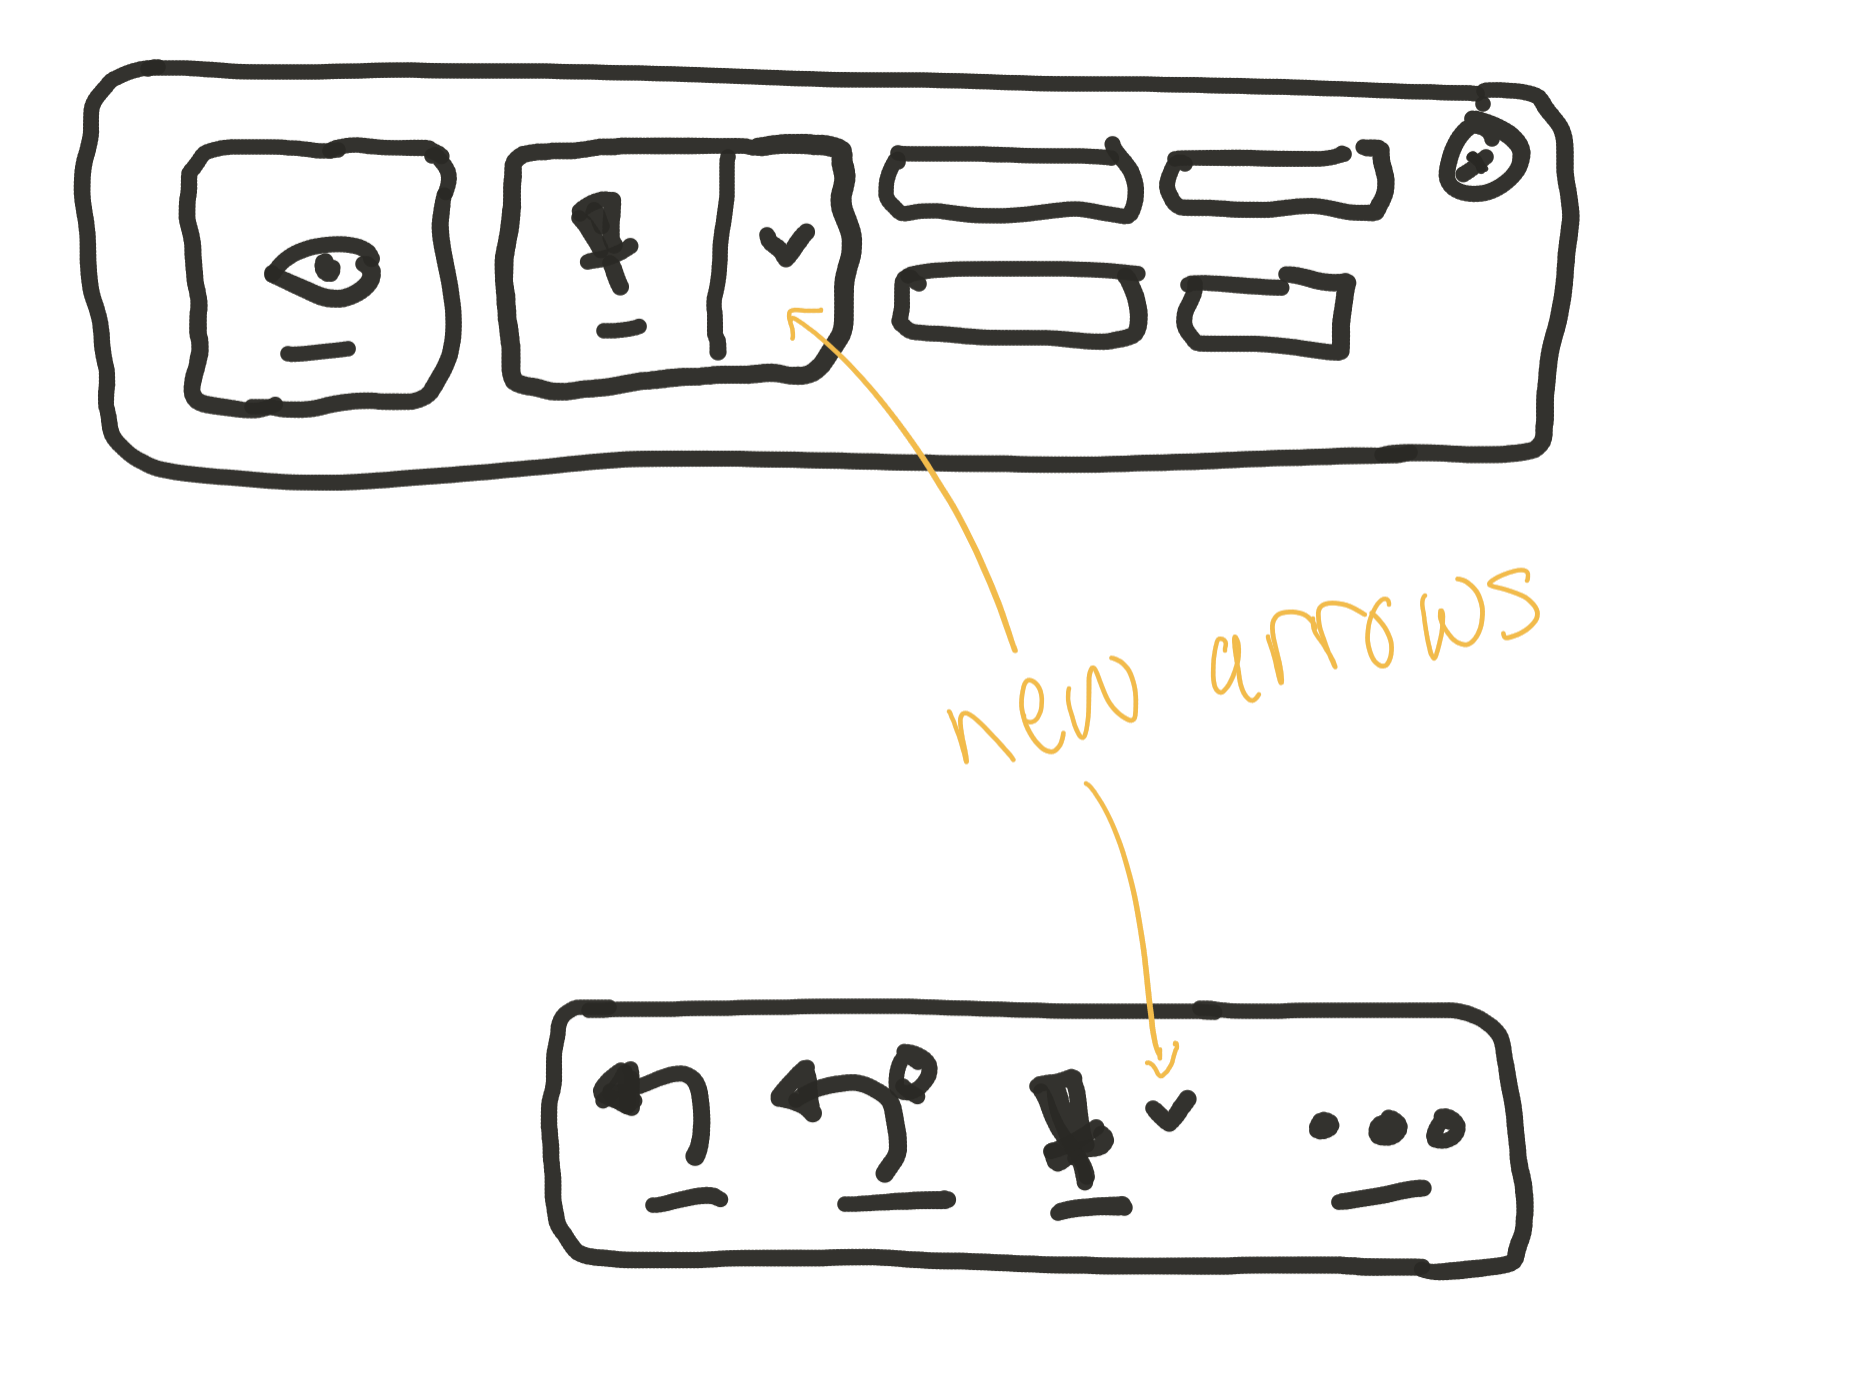 new arrows